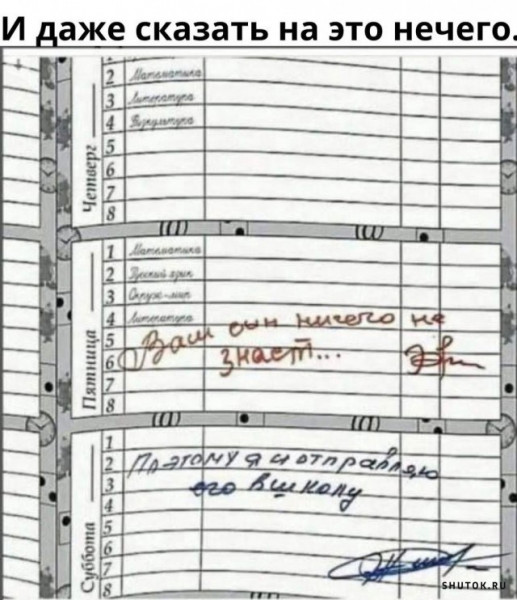 И даже сказать на это нечего.
Четверг
2 Математика
3 Литература
4 Физкультура
5
6
7
8
Пятница
1 Математика
2 Русский язык
3 Окруж-мир
4 Литература
5
6
7
8
Ваш сын ничего не
знает...
Суббота
1
2
3
4
5
6
7
8
Поэтому я и отправляю
его в школу
SHUTOK.RU